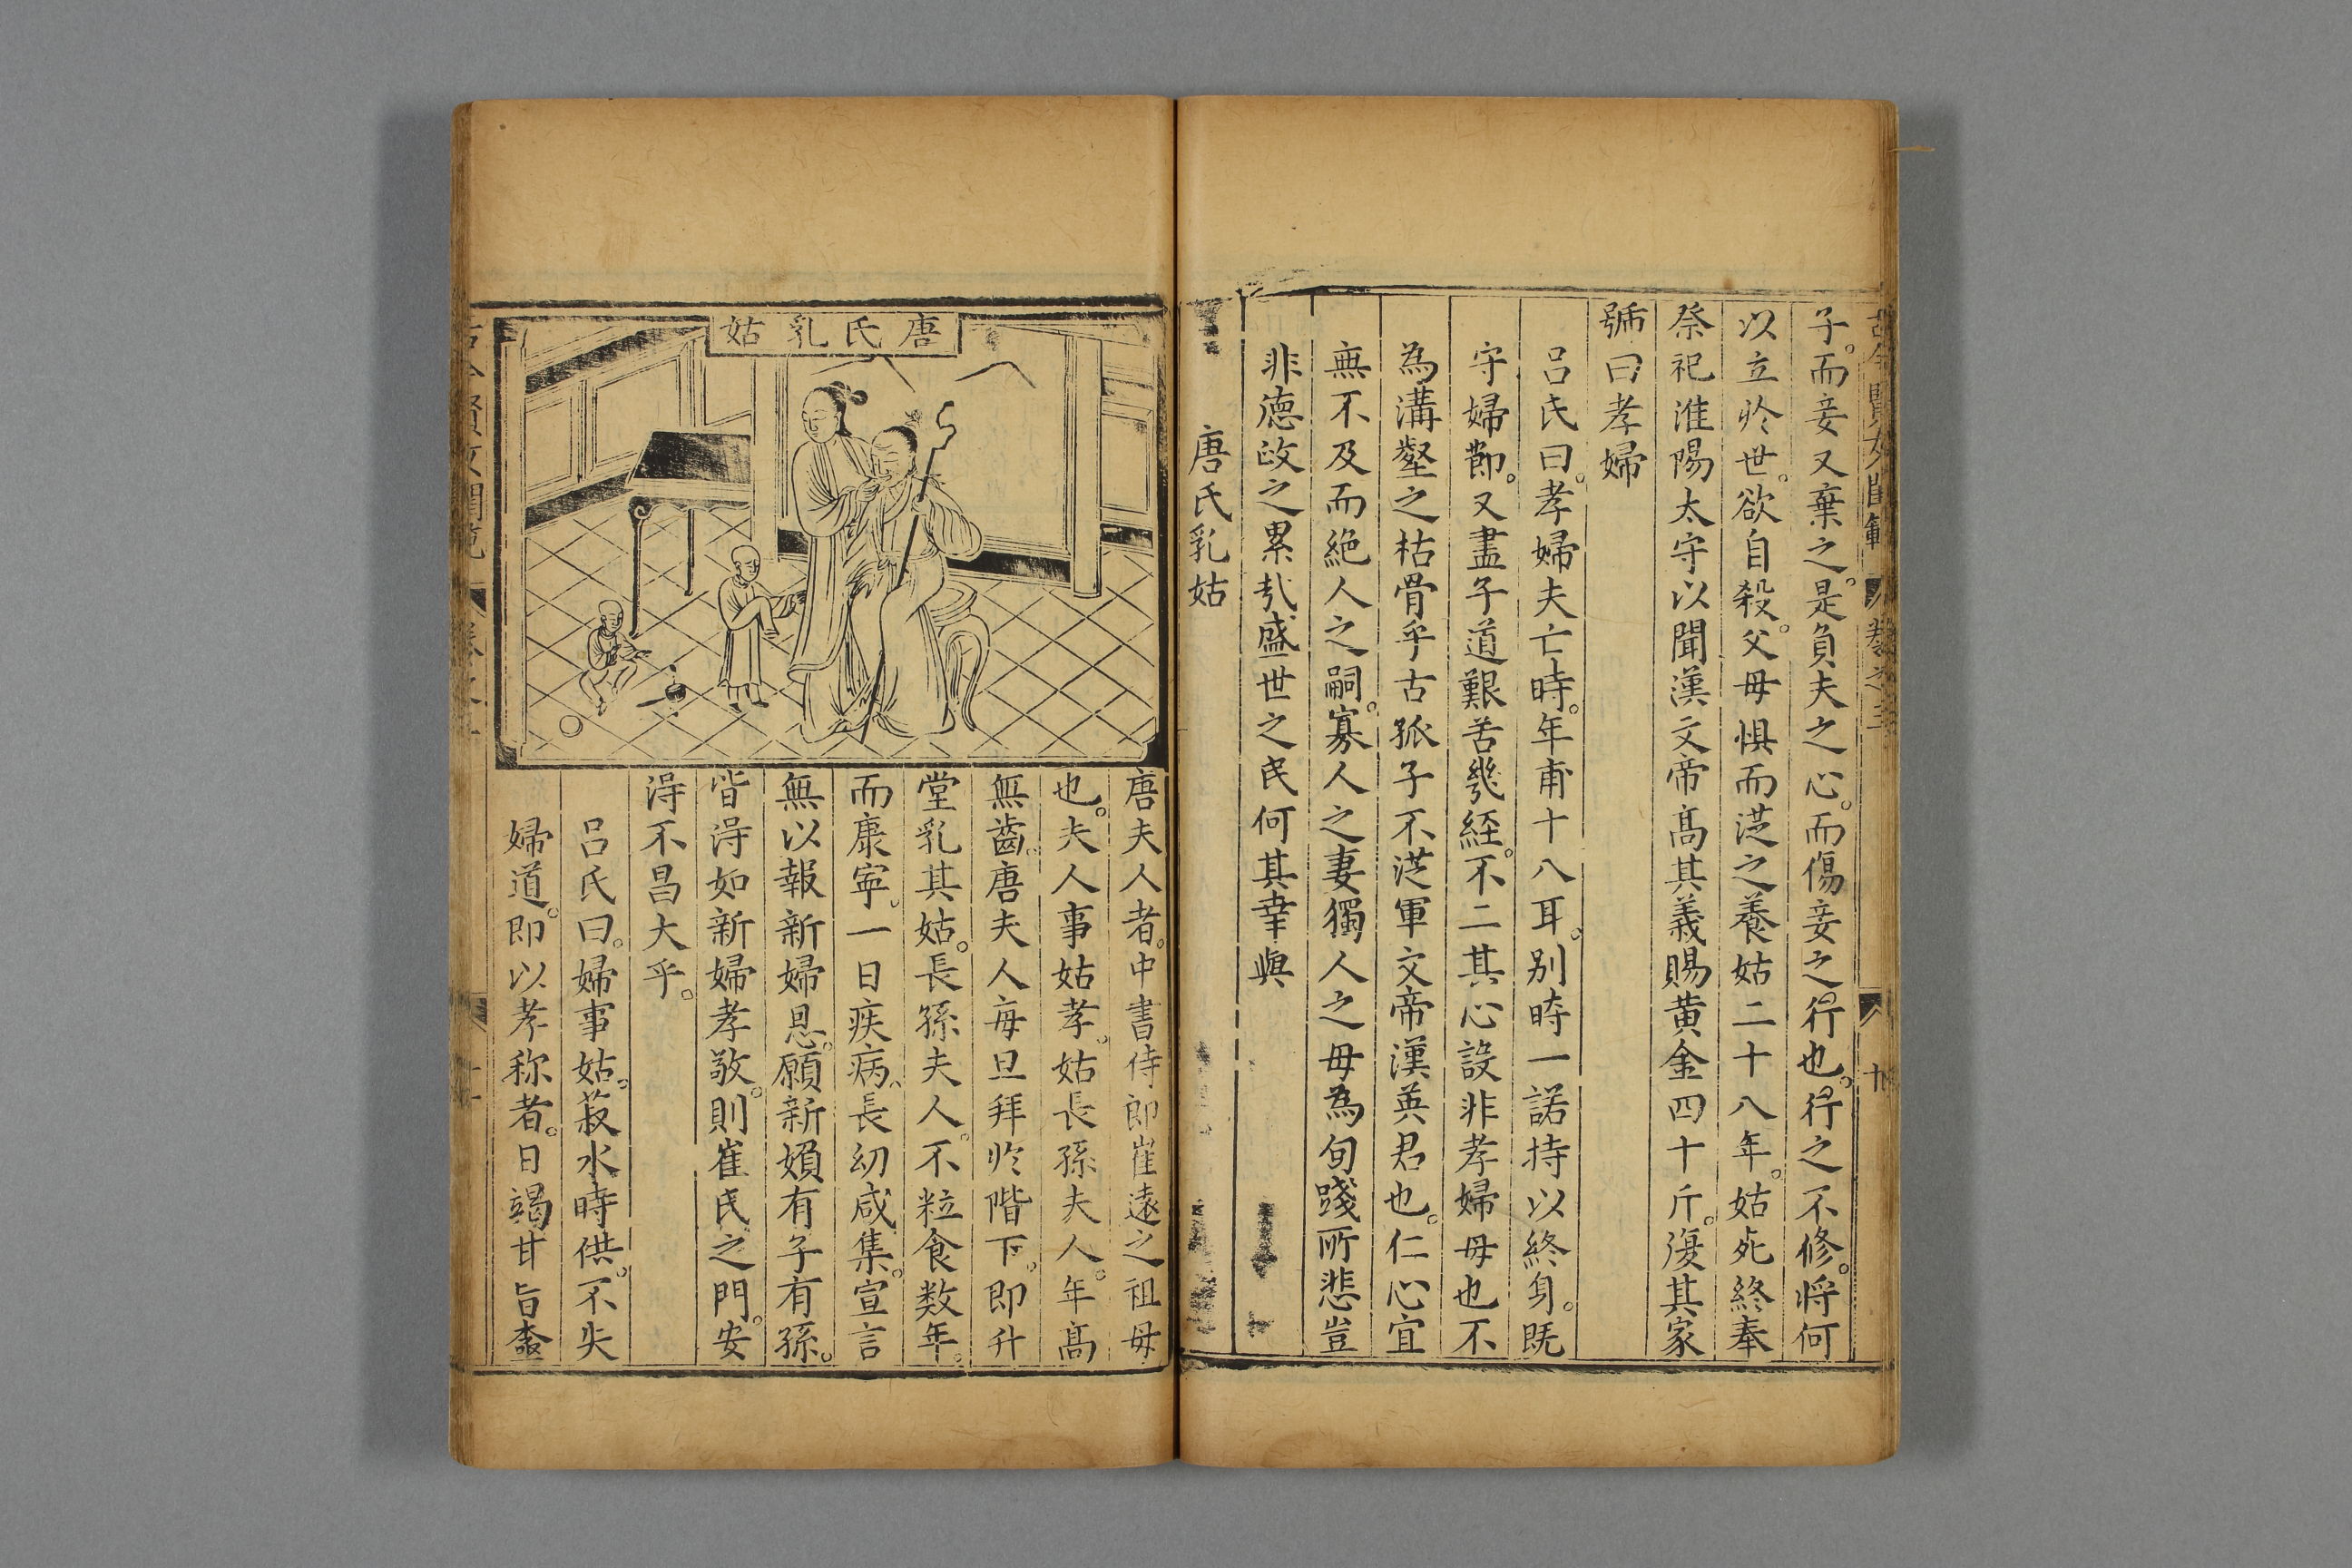 子。而妾又棄之。是負夫之心。而傷妾之行也。行之不修。將何
以立於世。欲自殺。父母懼而從之養姑二十八年。姑死終奉
祭祀淮陽太守以聞漢文帝高其義賜黃金四十斤。復其家
號曰孝婦
呂氏曰。孝婦夫亡時。年甫十八耳。別時一諾持以終身。既
守婦節。又盡子道艱苦幾經。不二其心設非孝婦母也不
為溝壑之枯骨乎古孤子不從軍文帝漢英君也。仁心宜
無不及而絕人之嗣。寡人之妻獨人之母為句踐所悲豈
非德政之累哉盛世之民何其幸與
唐氏乳姑
唐氏乳姑
唐夫人者。中書侍郎崔遠之祖母
也。夫人事姑孝。姑長孫夫人。年高
無齒。唐夫人每旦拜於階下。即升
堂乳其姑。長孫夫人。不粒食数年。
而康寧。一日疾病。長幼咸集。宣言
無以報新婦恩。願新婦有子有孫。
皆得如新婦孝敬。則崔氏之門。安
得不昌大乎。
呂氏曰。婦事姑。菽水時供。不失
婦道。即以孝称者。日竭甘旨